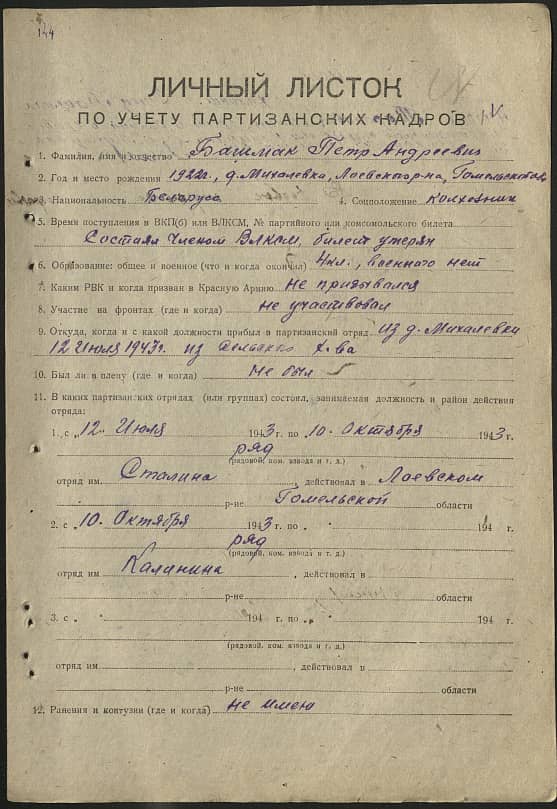 144
ЛИЧНЫЙ ЛИСТОК
ПО УЧЕТУ ПАРТИЗАНСКИХ КАДРОВ
1. Фамилия, имя и отчество Башмак Петр Андреевич
2. Год и место рождения 1922г., д. Михалевка, Лоевского р-на, Гомельской обл
3. Национальность Беларус 4. Соцположение колхозник
5. Время поступления в ВКП(б) или ВЛКСМ, № партийного или комсомольского билета
Состоял членом ВЛКСМ, билет утерян
6. Образование: общее и военное (что и когда окончил) 4 кл., военного нет
7. Каким РВК и когда призван в Красную Армию не призывался
8. Участие на фронтах (где и когда) не участвовал
9. Откуда, когда и с какой должности прибыл в партизанский отряд из д. Михалевки
12 Июля 1943г. из сельского х-ва
10. Был ли в плену (где и когда) не был
11. В каких партизанких отрядах (или группах) состоил, занимаемая должность и район действия
отряда:
1. с „12„ Июля 1943 г. по „10„ Октября 1943 г.
ряд
(рядовой, ком. взвода и т. д.)
отряд им. Сталина, действовал в Лоевском
р-не Гомельской области
2. с „10„ Октября 1943 г. по „ 194 г.
ряд
(рядовой, ком. взвода и т. д.)
отряд им Калинина, действовал в
р-не области
3. с „ 194 г. по „ 194 г.
(рядовой, ком. взвода и т. д.)
отряд им. , действовал в
р-не области
12. Ранения и контузии (где и когда) не имею